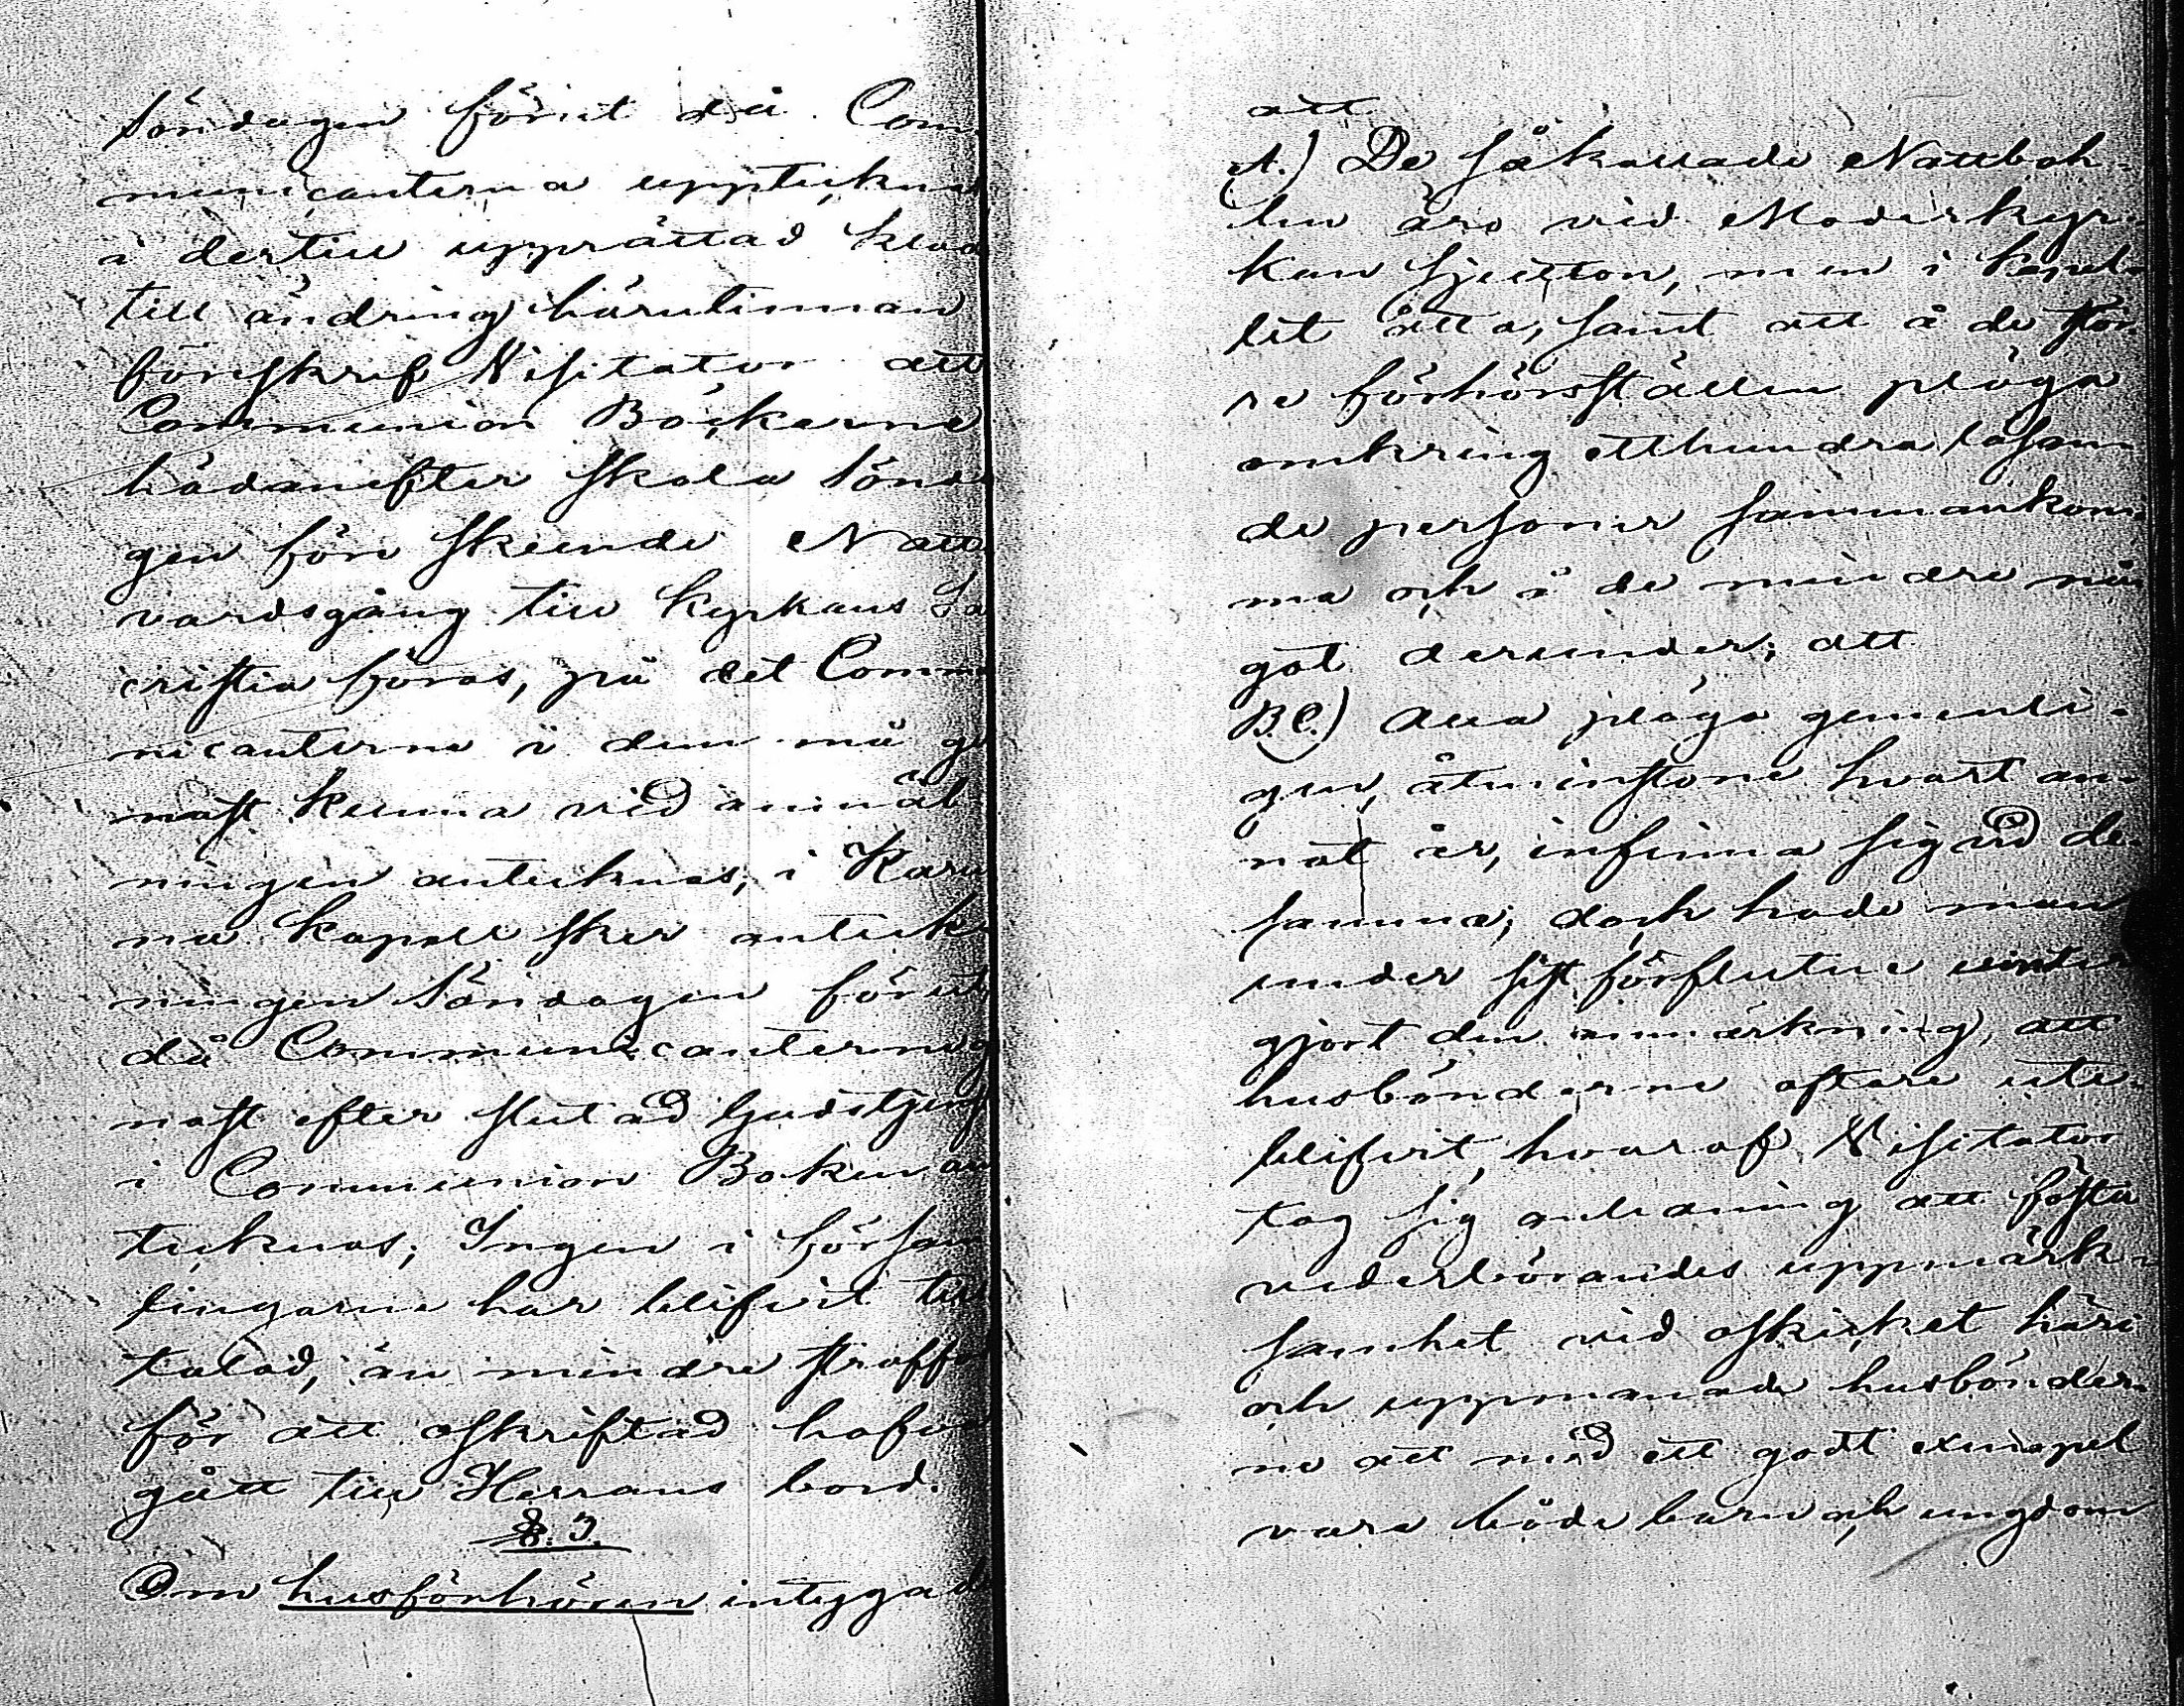 Söndagen förut då Com
municanterna upptecknas
å dertill upprättad klad
till ändring härutinnan
föreskref Visitator att
Communion Böckerne
hädanefter skola Sönda
gen före skeende Natt
vardsgång till Kyrkans Sa
cristia föras, på det Commu
nicanterne i dem må ge
nast kunna vid anmäl
ningen antecknas; i Karu
na Kapell sker anteck
ningen Söndagen förut,
då Communicanterne ge
nast efter slutad Gudstjenst
i Communion Boken an
tecknas; Ingen i Försam
lingarne har blifvit till
talad, än mindre straffad
för att oskriftad hafva
gått till Herrans bord.
§. 3.
Om husförhören intygad
att
A.) De såkallade Nattboh
len äro vid Moderkyr-
kan sjutton, men i Kapel-
let åtta, samt att å de stör
re förhörsställen pläga
omkring etthundra läsan
de personer sammankom-
ma och å de mindre nå
got derunder; att
B.C.) Alla pläga gemenli-
gen, åtminstone hvart an-
nat år, infinna sig vid de-
samma; dock hade man
under sist förflutne vinter
gjort den anmärkning, att
husbönderne oftare ute-
blifvit, hvaraf Visitator
tog sig anledning att fästa
vederbörandes uppmärk-
samhet vid oskicket häri
och uppmanade husbönder-
ne att med ett godt exempel
vara både barn och ungdom